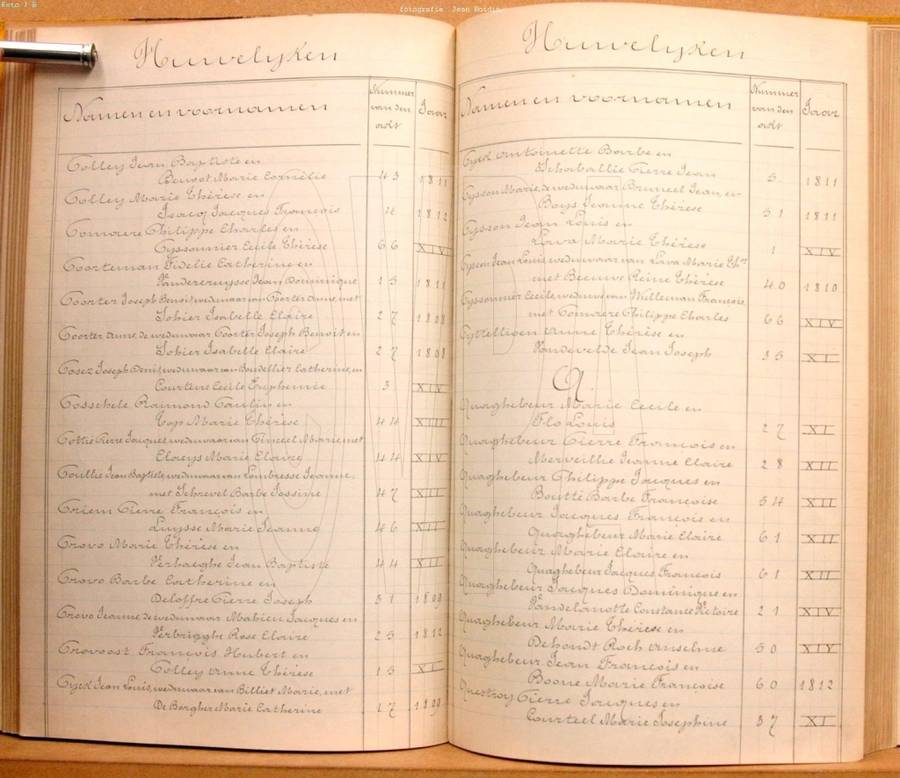 Foto 16
fotografie Jean Bordin
Huwelyken
Namen en voornamen
Nummer van den acht
Jaar
Polley Jean Baptiste en
Benoot Marie Cornélie 43 1811
Polley Marie Thérèse en
Isacq Jacques François 1812
Pomaere Philippe Charles en
Pyssonnier Cecile Thérèse 66 XIV
Poorteman Fidelie Catherine en
Vandecruysse Jean Dominique 13 1811
Poorter Joseph Benoit weduwaar van Poorter Anne, met
Sohier Isabelle Claire 27 1808
Poorter Anne, de weduwaar Poorter Joseph Benoit, en
Sohier Isabelle Claire 27 1808
Posez Joseph Denis, weduwaar van Boudellier Catherine, en
Courtens Cecile Euphemie 3 XIV
Posschele Raimond Paulin en
Top Marie Thérèse 44 XIII
Pottie Pierre Jacques weduwaar van Marie, met
Claeys Marie Claire 44 XIV
Pouillie Jean Baptiste, weduwaar van Lombresse Jeanne,
met Schrevel Barbe Jossine 47 XII
Priem Pierre François en
Luysse Marie Jeanne 46 XII
Provo Marie Thérèse en
Verhaeghe Jean Baptiste 44 XII
Provo Barbe Catherine en
Deloffre Pierre Joseph 31 1809
Provo Jeanne de weduwaar Mahieu Jacques en
Verbrigghe Rose Claire 25 1812
Provoost François Hubert en
Polley Anne Thérèse 13 XI
Pyck Jean Louis, weduwaar van Billiet Marie, met
De Borgher Marie Catherine 17 1809
Huwelyken
Namen en voornamen
Nummer van den acht
Jaar
Pyck Antoinette Barbe en
Schaballie Pierre Jean 5 1811
Pysson Marie, de weduwaar Bruneel Jean, en
Buys Jeanne Thérèse 51 1811
Pysson Jean Louis en
Lava Marie Thérèse 1 XIV
Pysson Jean Louis weduwaar van Lava Marie Thse
met Beeuwe Reine Thérèse 40 1810
Pyssonnier Cecile, weduwe van Willeman François,
met Pomaere Philippe Charles 66 XIV
Pyttelligen Anne Thérèse en
Vandevelde Jean Joseph 35 XI
Q.
Quaghebeur Marie Cecile en
Flo Louis 27 XI
Quaghebeur Pierre François en
Merveillie Jeanne Claire 28 XII
Quaghebeur Philippe Jacques en
Boutté Barbe Françoise 54 XII
Quaghebeur Jacques François en
Quaghebeur Marie Claire 61 XII
Quaghebeur Marie Claire en
Quaghebeur Jacques François 61 XII
Quaghebeur Jacques Dominique en
Vandelanotte Constance Victoire 21 XIV
Quaghebeur Marie Thérèse en
Dehondt Roch Anselme 50 XIV
Quaghebeur Jean François en
Boone Marie Françoise 60 1812
Questroy Pierre Jacques en
Courteel Marie Josephine 37 XI